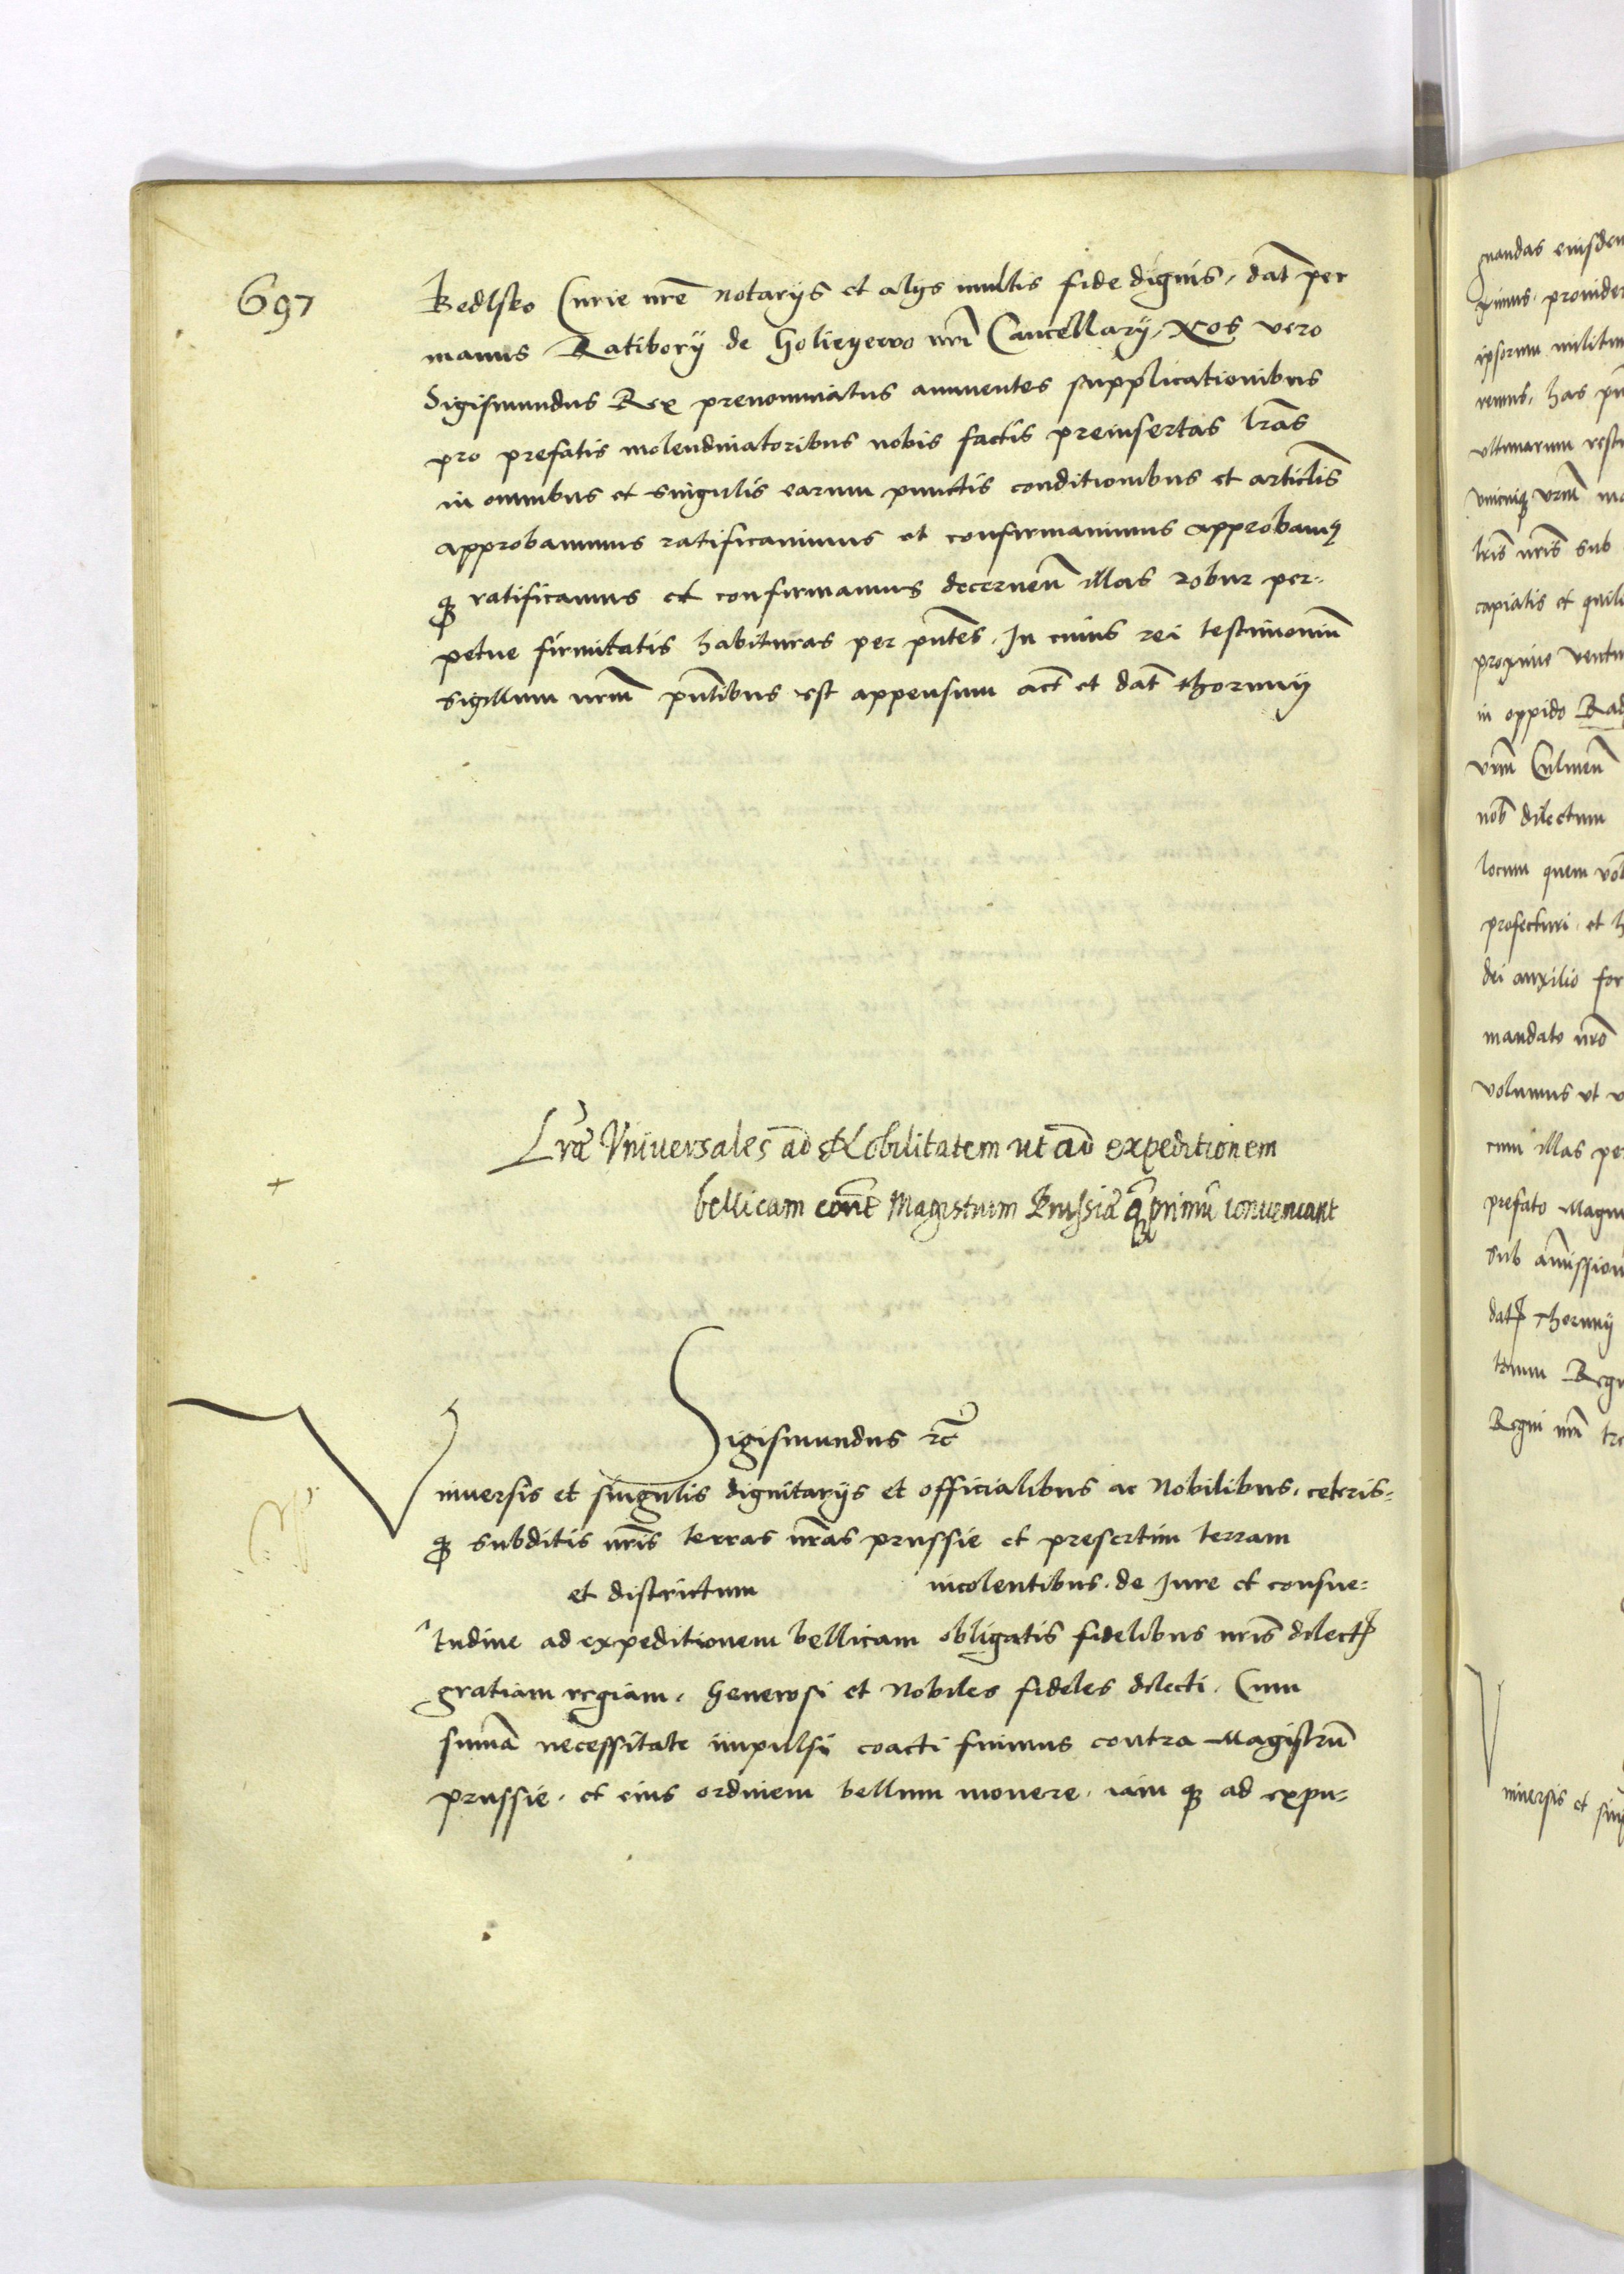 697
Bedlsko Curie nre notarijs et alijs multis fide dignis, dat per
manus Ratiborij de Golieyewo nri Cancellarij, Nos vero
Sigismundus Rex prenominatus annuentes supplicationibus
pro prefatis molendinatoribus nobis factis preinsertas lras
in omnibus et singulis earum punctis conditionibus et articlis
approbavimus ratificavimus et confirmavimus approbamq
q ratificamus et confirmamus decernen illas robur per-
petue firmitatis habituras per pntes. In cuius rei testimonium
sigillum nrm pntibus est appensum act et dat thorunij
Lræ Vniversales ad Nobilitatem ut ad expeditionem
bellicam cont Magistrum Prussiæ q primu conveniant
+
Sigismundus rc
Vniversis et singulis dignitarijs et officialibus ac Nobilibus, ceteris-
q subditis nris terras nras prussie et presertim terram
et districtum incolentibus. de Jure et consue-
tudine ad expeditionem bellicam obligatis fidelibus nris dilect
gratiam regiam. Generosi et Nobiles fideles dilecti. Cum
suma necessitate impulsi coacti fuimus contra Magistru
prussie. et eius ordinem bellum movere. iam q ad expu-
gnandas eiusdem
ximus. provider
ipsorum militum
remus, has
ultimarum
unicuiq vrm
lris nris sub
capiatis et quili
proxime ventu
in oppido Rad
vrm Culmen
nob dilectum
locum quem vob
profecturi. et h
dei auxilio for
mandato nro
volumus ut v
cum illas pe
prefato Magn
sub amission
dat Thorunij
trum Regn
Regni nri
Vniversis et sing